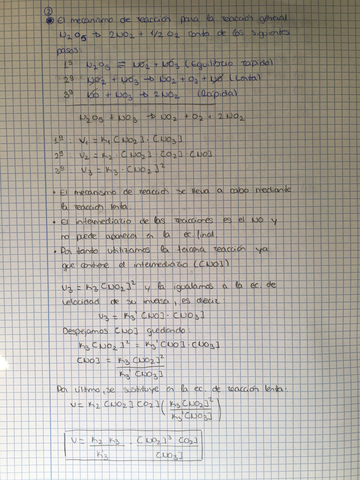 ②
• El mecanismo de reacción para la reacción general
N₂O₅ → 2NO₂ + 1/2 O₂ consta de los siguientes
pasos:
1º N₂O₅ ⇌ NO₂ + NO₃ (Equilibrio rápido)
2º NO₂ + NO₃ → NO₂ + O₂ + NO (Lenta)
3º NO + NO₃ → 2NO₂ (Rápida)
N₂O₅ + NO₃ → NO₂ + O₂ + 2NO₂
1º V₁ = K₁ [NO₂] · [NO₃]
2º V₂ = K₂ · [NO₂] [O₂] [NO]
3º V₃ = K₃ · [NO₂]²
• El mecanismo de reacción se lleva a cabo mediante
la reacción lenta.
• El intermediario de las reacciones es el NO y
no puede aparecer en la ec final.
• Por tanto utilizamos la tercera reacción ya
que contiene el intermediario ([NO])
V₃ = K₃ [NO₂]² y la igualamos a la ec. de
velocidad de su inversa, es decir
V₃ = K₃' [NO] · [NO₃]
Despejamos [NO] quedando:
K₃ [NO₂]² = K₃' [NO] · [NO₃]
[NO] = K₃ [NO₂]² / K₃' [NO₃]
Por último, se sustituye en la ec. de reacción lenta:
V = K₂ [NO₂] [O₂] (K₃ [NO₂]² / K₃' [NO₃])
V = K₂ K₃ / K₃ · [NO₂]³ [O₂] / [NO₃]